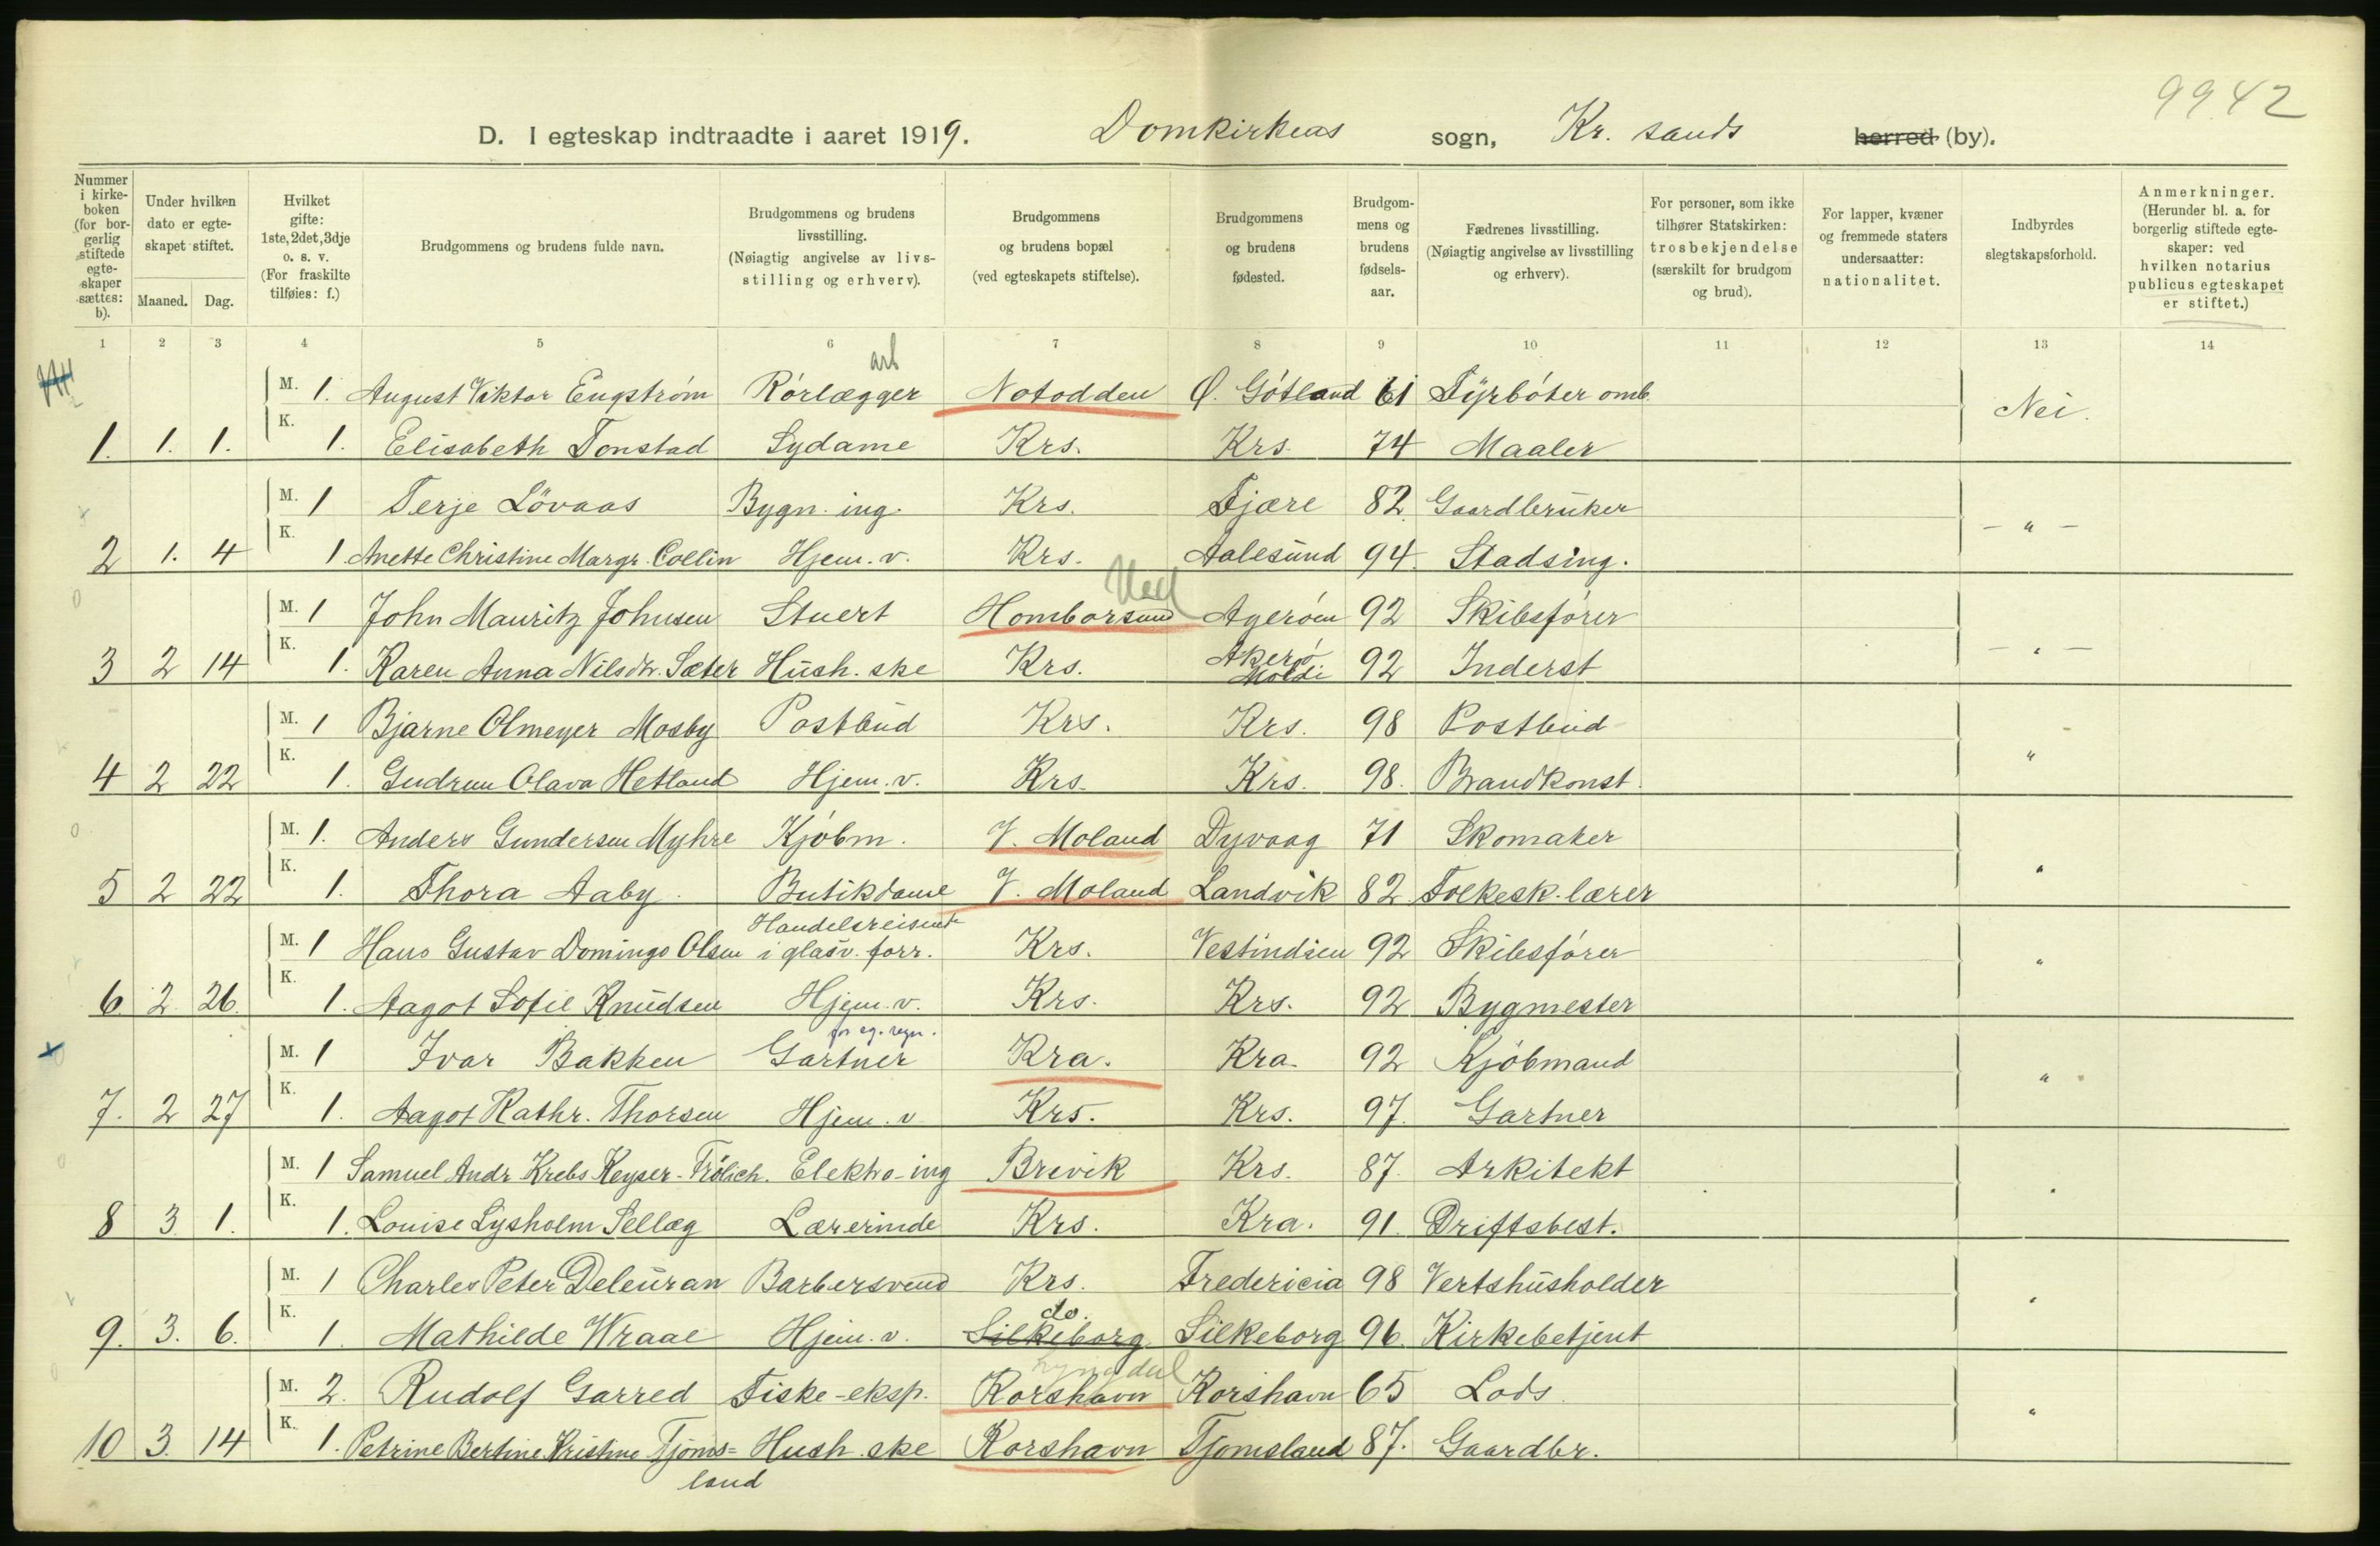 9942
D. I egteskap indtraadte i aaret 1919. Domkirkens sogn, Kr. sands herred (by).
Nummer i kirkeboken (for borgerlig stiftede egteskaper sættes: b).
Under hvilken dato er egteskapet stiftet.
Maaned. Dag.
Hvilket gifte: 1ste, 2det, 3dje o. s. v. (For fraskilte tilføies: f.)
Brudgommens og brudens fulde navn.
Brudgommens og brudens livsstilling. (Nøiagtig angivelse av livsstilling og erhverv).
Brudgommens og brudens bopæl (ved egteskapets stiftelse).
Brudgommens og brudens fødested.
Brudgommens og brudens fødselsaar.
Fædrenes livsstilling. (Nøiagtig angivelse av livsstilling og erhverv).
For personer, som ikke tilhører Statskirken: trosbekjendelse (særskilt for brudgom og brud).
For lapper, kvæner og fremmede staters undersaatter: nationalitet.
Indbyrdes slegtskapsforhold.
Anmerkninger. (Herunder bl. a. for borgerlig stiftede egteskaper: ved hvilken notarius publicus egteskapet er stiftet.)
1 2 3 4 5 6 7 8 9 10 11 12 13 14
arb
M. 1. August Viktor Engstrøm Rórlægger Notodden Ø. Götland 61 Fyrbóter omb. Nei.
1. 1. 1. K. 1. Elisabeth Tonstad Sydame Krs. Krs. 74 Maaler
M. 1 Terje Lövaas Bygn. ing. Krs. Fjære 82 Gaardbruker - " -
2 1. 4 K. 1 Anette Christine Margr. Collin Hjem. v. Krs. Aalesund 94. Stadsing.
M. 1 John Mauritz Johnsen Stuert Homborsund Agerøen 92 Skibsfører - " -
3 2 14 K. 1. Karen Anna Nilsdtr. Sæter Hush. ske Krs. Akerö Molde 92 Inderst
M. 1 Bjarne Olmeyer Mosby Postbud Krs. Krs. 98 Postbud "
4 2 22 K. 1. Gudrun Olava Hetland Hjem. v. Krs. Krs. 98. Brandkonst.
M. 1. Anders Gundersen Myhre Kjøbm. V. Moland Dyvaag 71 Skomaker "
5 2 22 K. 1. Thora Aaby. Butikdame V. Moland Landvik 82 Folkesk. lærer
Handelsreisende
M. 1 Hans Gustav Domingo Olsen i glasv. forr. Krs. Vestindien 92 Skibsfører "
6 2 26. K. 1. Aagot Sofie Knudsen Hjem. v. Krs. Krs. 92 Bygmester
for eg. regn.
M. 1 Ivar Bakken Gartner Kra. Kra. 92 Kjöbmand "
7. 2 27 K. 1. Aagot Kathr. Thorsen Hjem. v Krs. Krs. 97. Gartner
M. 1 Samuel Andr. Krebs Keyser-Frölich. Elektro-ing Brevik Krs. 87. Arkitekt "
8 3 1. K. 1. Louise Lysholm Sellæg Lærerinde Krs. Kra. 91. Driftsbest.
M. 1 Charles Peter Deleuran Barbersvend Krs. Fredericia 98 Vertshusholder "
do.
9. 3. 6. K. 1. Mathilde Wraae Hjem. v. Silkeborg Silkeborg 96. Kirkebetjent
Lyngdal
M. 2. Rudolf Garred Fiske-eksp. Korshavn Korshavn 65 Lods "
10 3. 14 K. 1. Petrine Bertine Kristine Tjöms= Hush. ske Korshavn Tjomsland 87. Gaardbr.
land